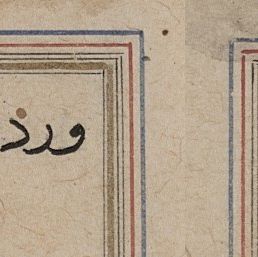 ورد